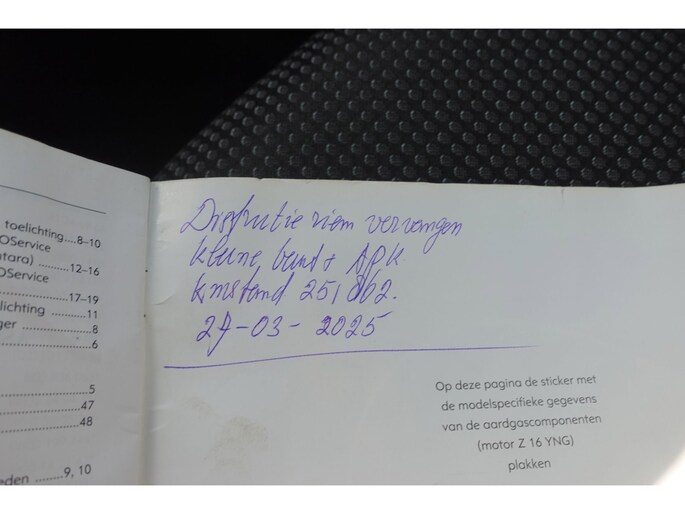 toelichting....8–10
OService
tara) ..........12–16
OService
..................17–19
lichting ..........11
ger ..................8
......................6
......................5
......................47
......................48
eden .......9, 10
Distributie riem vervangen
kleine beurt + APK
kmstand 251 862.
27-03-2025
Op deze pagina de sticker met
de modelspecifieke gegevens
van de aardgascomponenten
(motor Z 16 YNG)
plakken